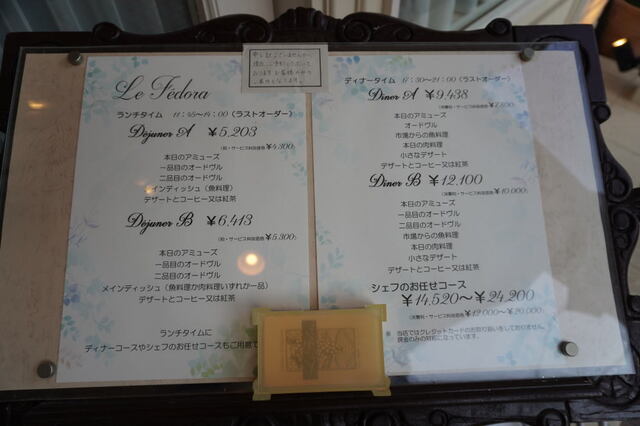 Le Fédora
ランチタイム 11:45〜14:00（ラストオーダー）
Déjuner A ￥5,203
￥4,300
本日のアミューズ
一品目のオードヴル
二品目のオードヴル
メインディッシュ（魚料理）
デザートとコーヒー又は紅茶
Déjuner B ￥6,413
￥5,300
本日のアミューズ
一品目のオードヴル
二品目のオードヴル
メインディッシュ（魚料理か肉料理いずれか一品）
デザートとコーヒー又は紅茶
ランチタイムに
ディナーコースやシェフのお任せコースもご用意
申し訳ございませんが、
ディナータイム 17:30〜21:00（ラストオーダー）
Diner A ￥9,438
￥7,800
本日のアミューズ
オードヴル
市場からの魚料理
本日の肉料理
小さなデザート
デザートとコーヒー又は紅茶
Diner B ￥12,100
￥10,000
本日のアミューズ
一品目のオードヴル
二品目のオードヴル
市場からの魚料理
本日の肉料理
小さなデザート
デザートとコーヒー又は紅茶
シェフのお任せコース
￥14,520〜￥24,200
￥12,000〜￥20,000
当店ではクレジットカードのお取り扱いをしておりません。
現金のみの対応になっています。